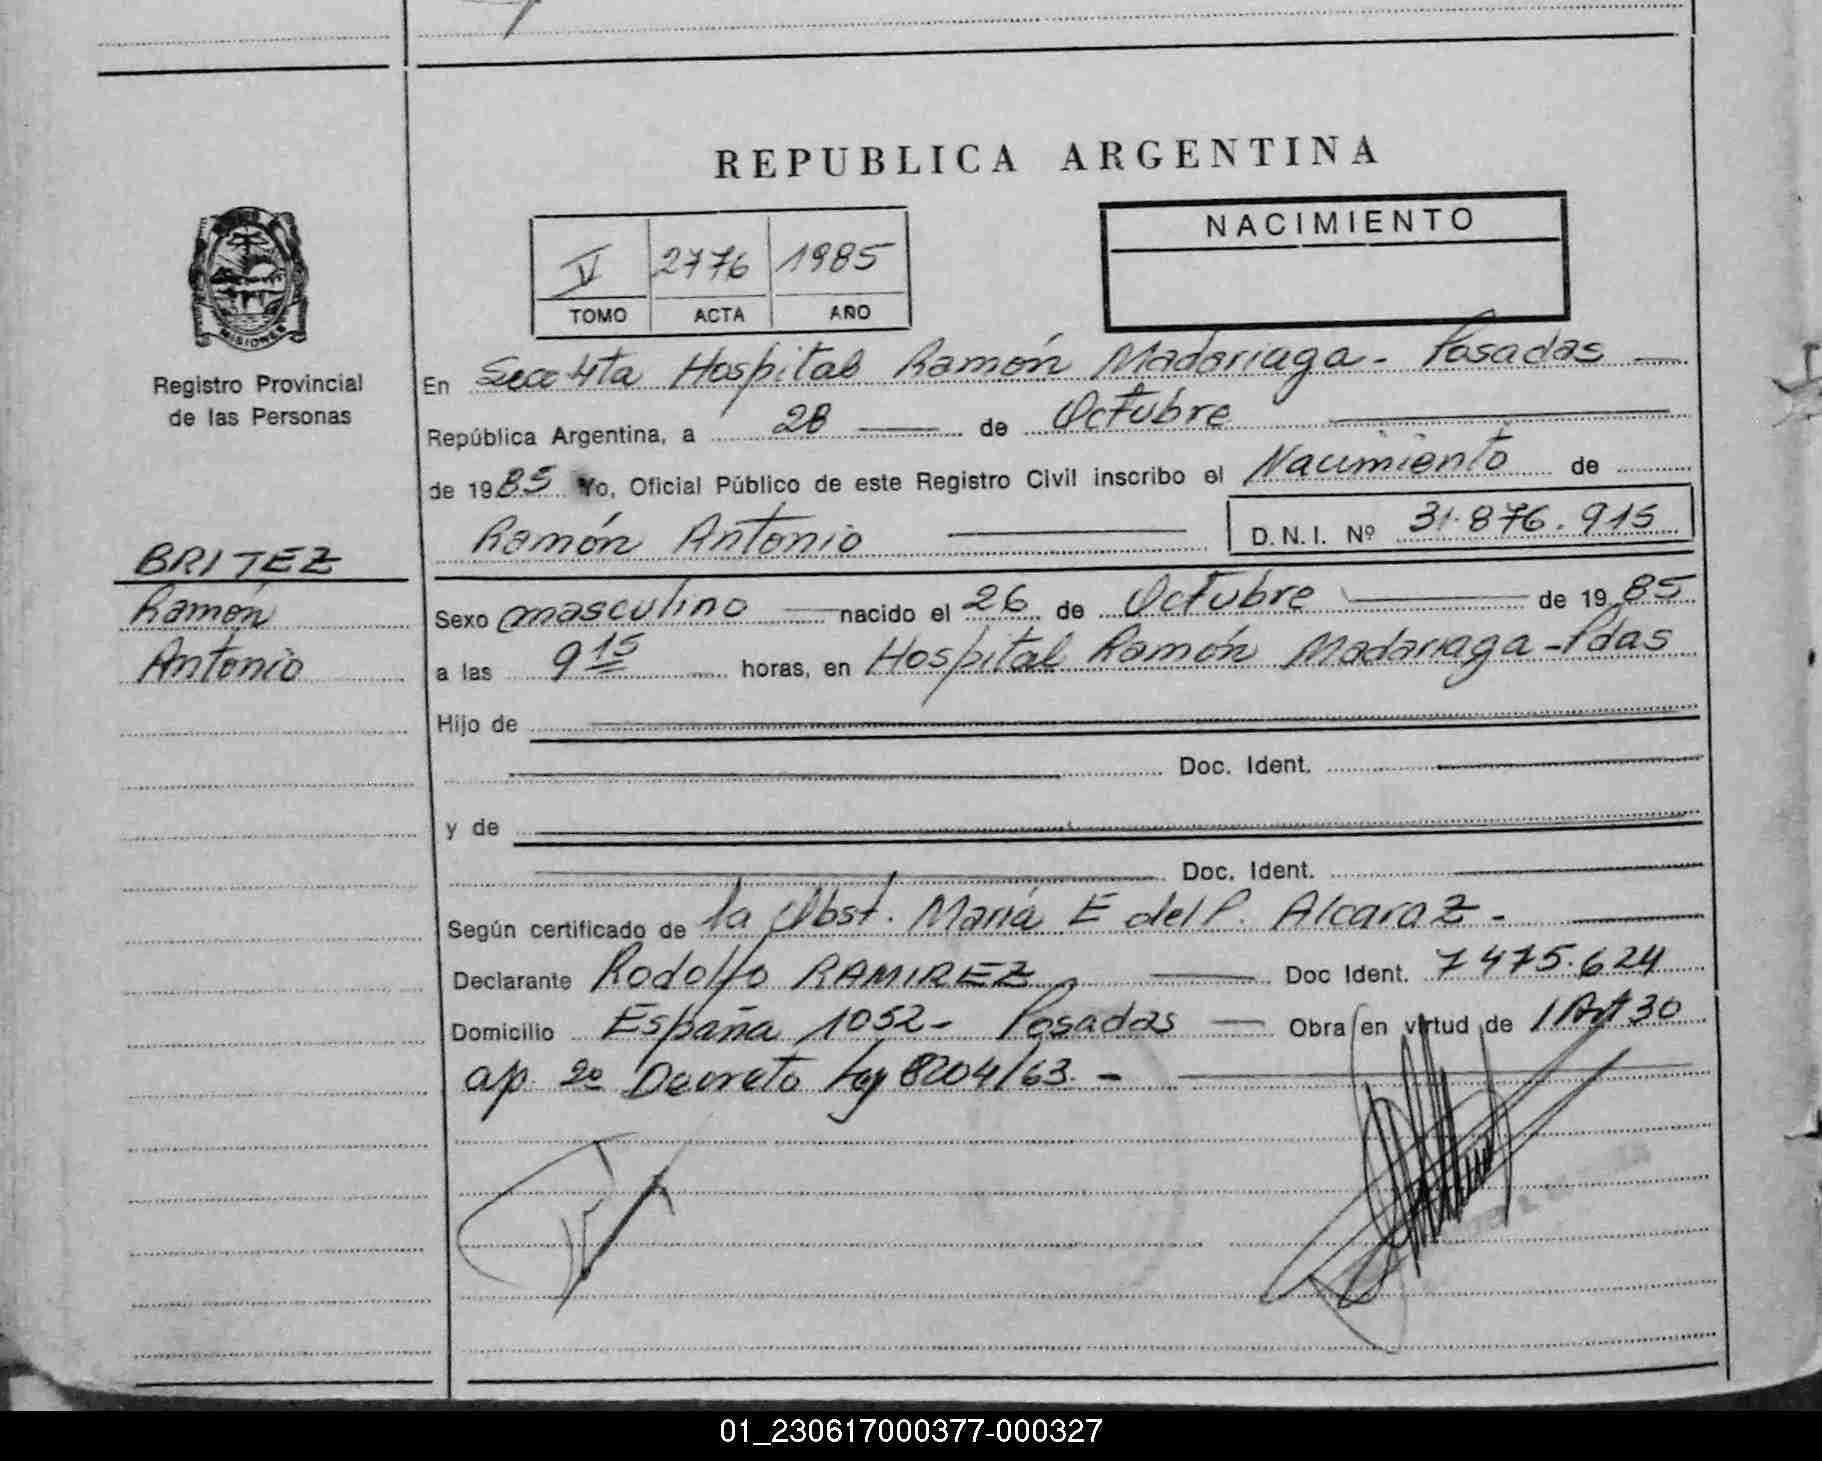 REPUBLICA ARGENTINA
NACIMIENTO
V 2776 1985
TOMO ACTA AÑO
MISIONES
Registro Provincial
de las Personas
En Secc 4ta Hospital Ramón Madariaga - Posadas
República Argentina, a 28 de Octubre
de 1985 Yo, Oficial Público de este Registro Civil inscribo el Nacimiento de
Ramón Antonio D.N.I. Nº 31.876.915
BRITEZ
Ramón
Antonio
Sexo masculino nacido el 26 de Octubre de 1985
a las 9 15 horas, en Hospital Ramón Madariaga - Pdas
Hijo de
Doc. Ident.
y de
Doc. Ident.
Según certificado de la Obst. María E del P. Alcaraz -
Declarante Rodolfo RAMIREZ Doc Ident. 7475.624
Domicilio España 1052 - Posadas Obra en virtud de / Art 30
ap. 2º Decreto Ley 8204/63. -
01_230617000377-000327